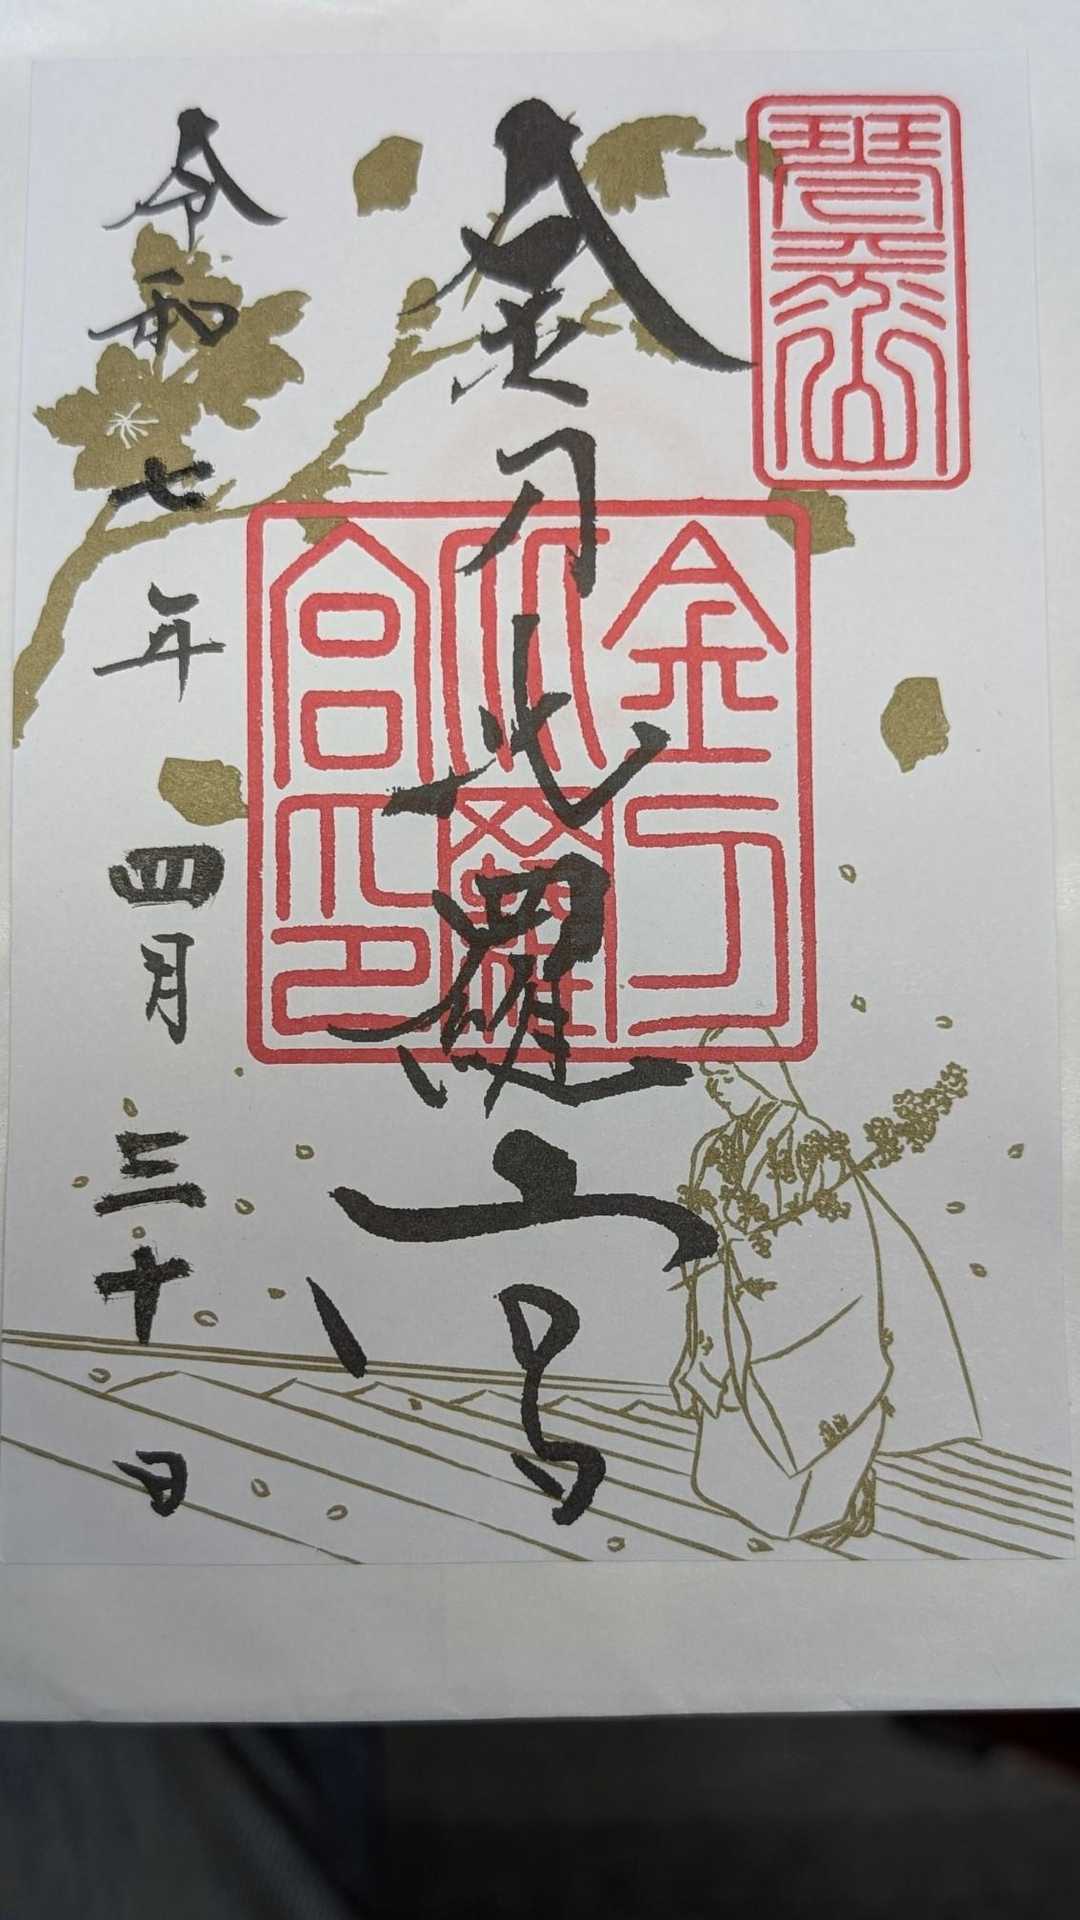 琴平山
金刀比羅宮
金刀比羅宮印
令和七年四月三十日